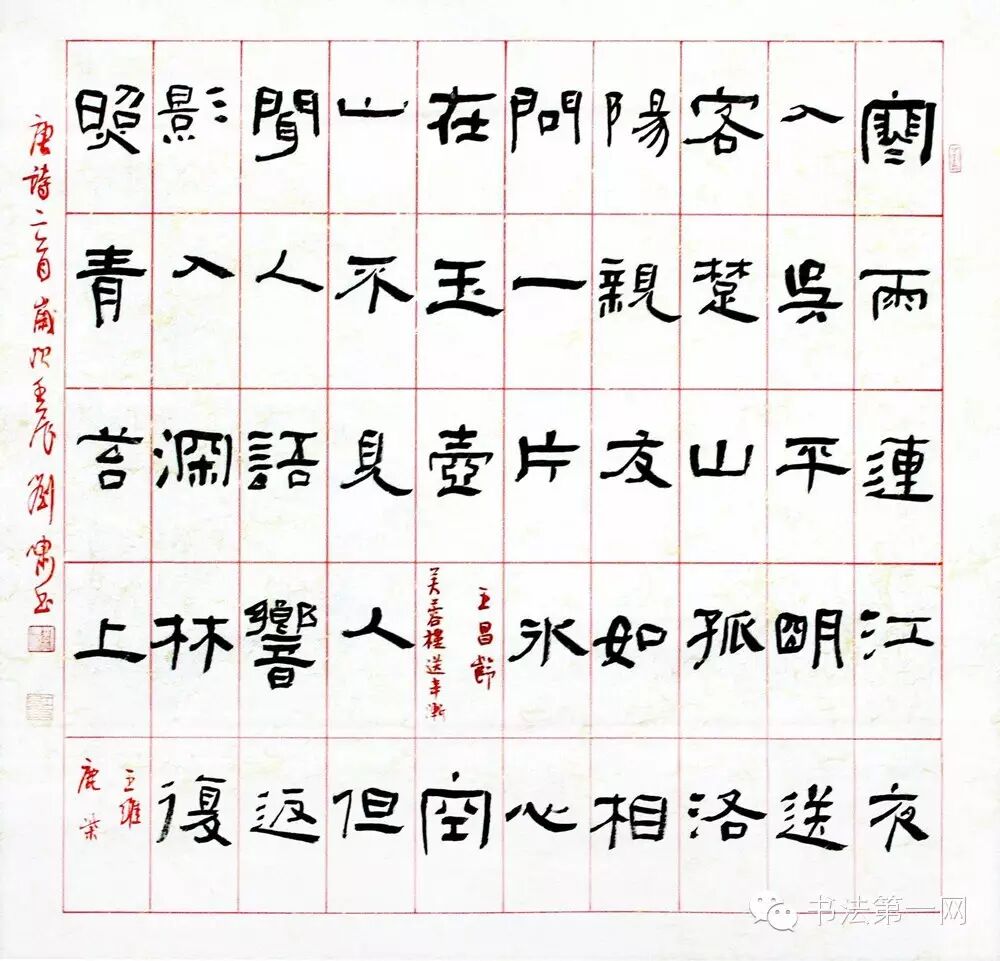 寒雨連江夜
入吳平明送
客楚山孤洛
陽親友如相
問一片氷心
在玉壺
王昌齡
芙蓉樓送辛漸
空
山不見人但
聞人語響返
影入深林復
照青苔上
王維
鹿柴
唐詩二首 歲次壬辰 劉嘯书
书法第一网